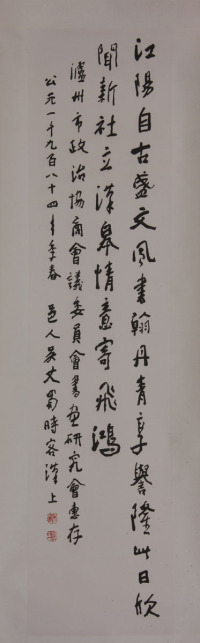 江陽自古盛文風書翰丹青享譽隆此日欣
聞新社立漢皋情意寄飛鴻
瀘州市政治協商會議委員會書畫研究會惠存
公元一千九百八十四年季春 邑人吳丈蜀時客漢上